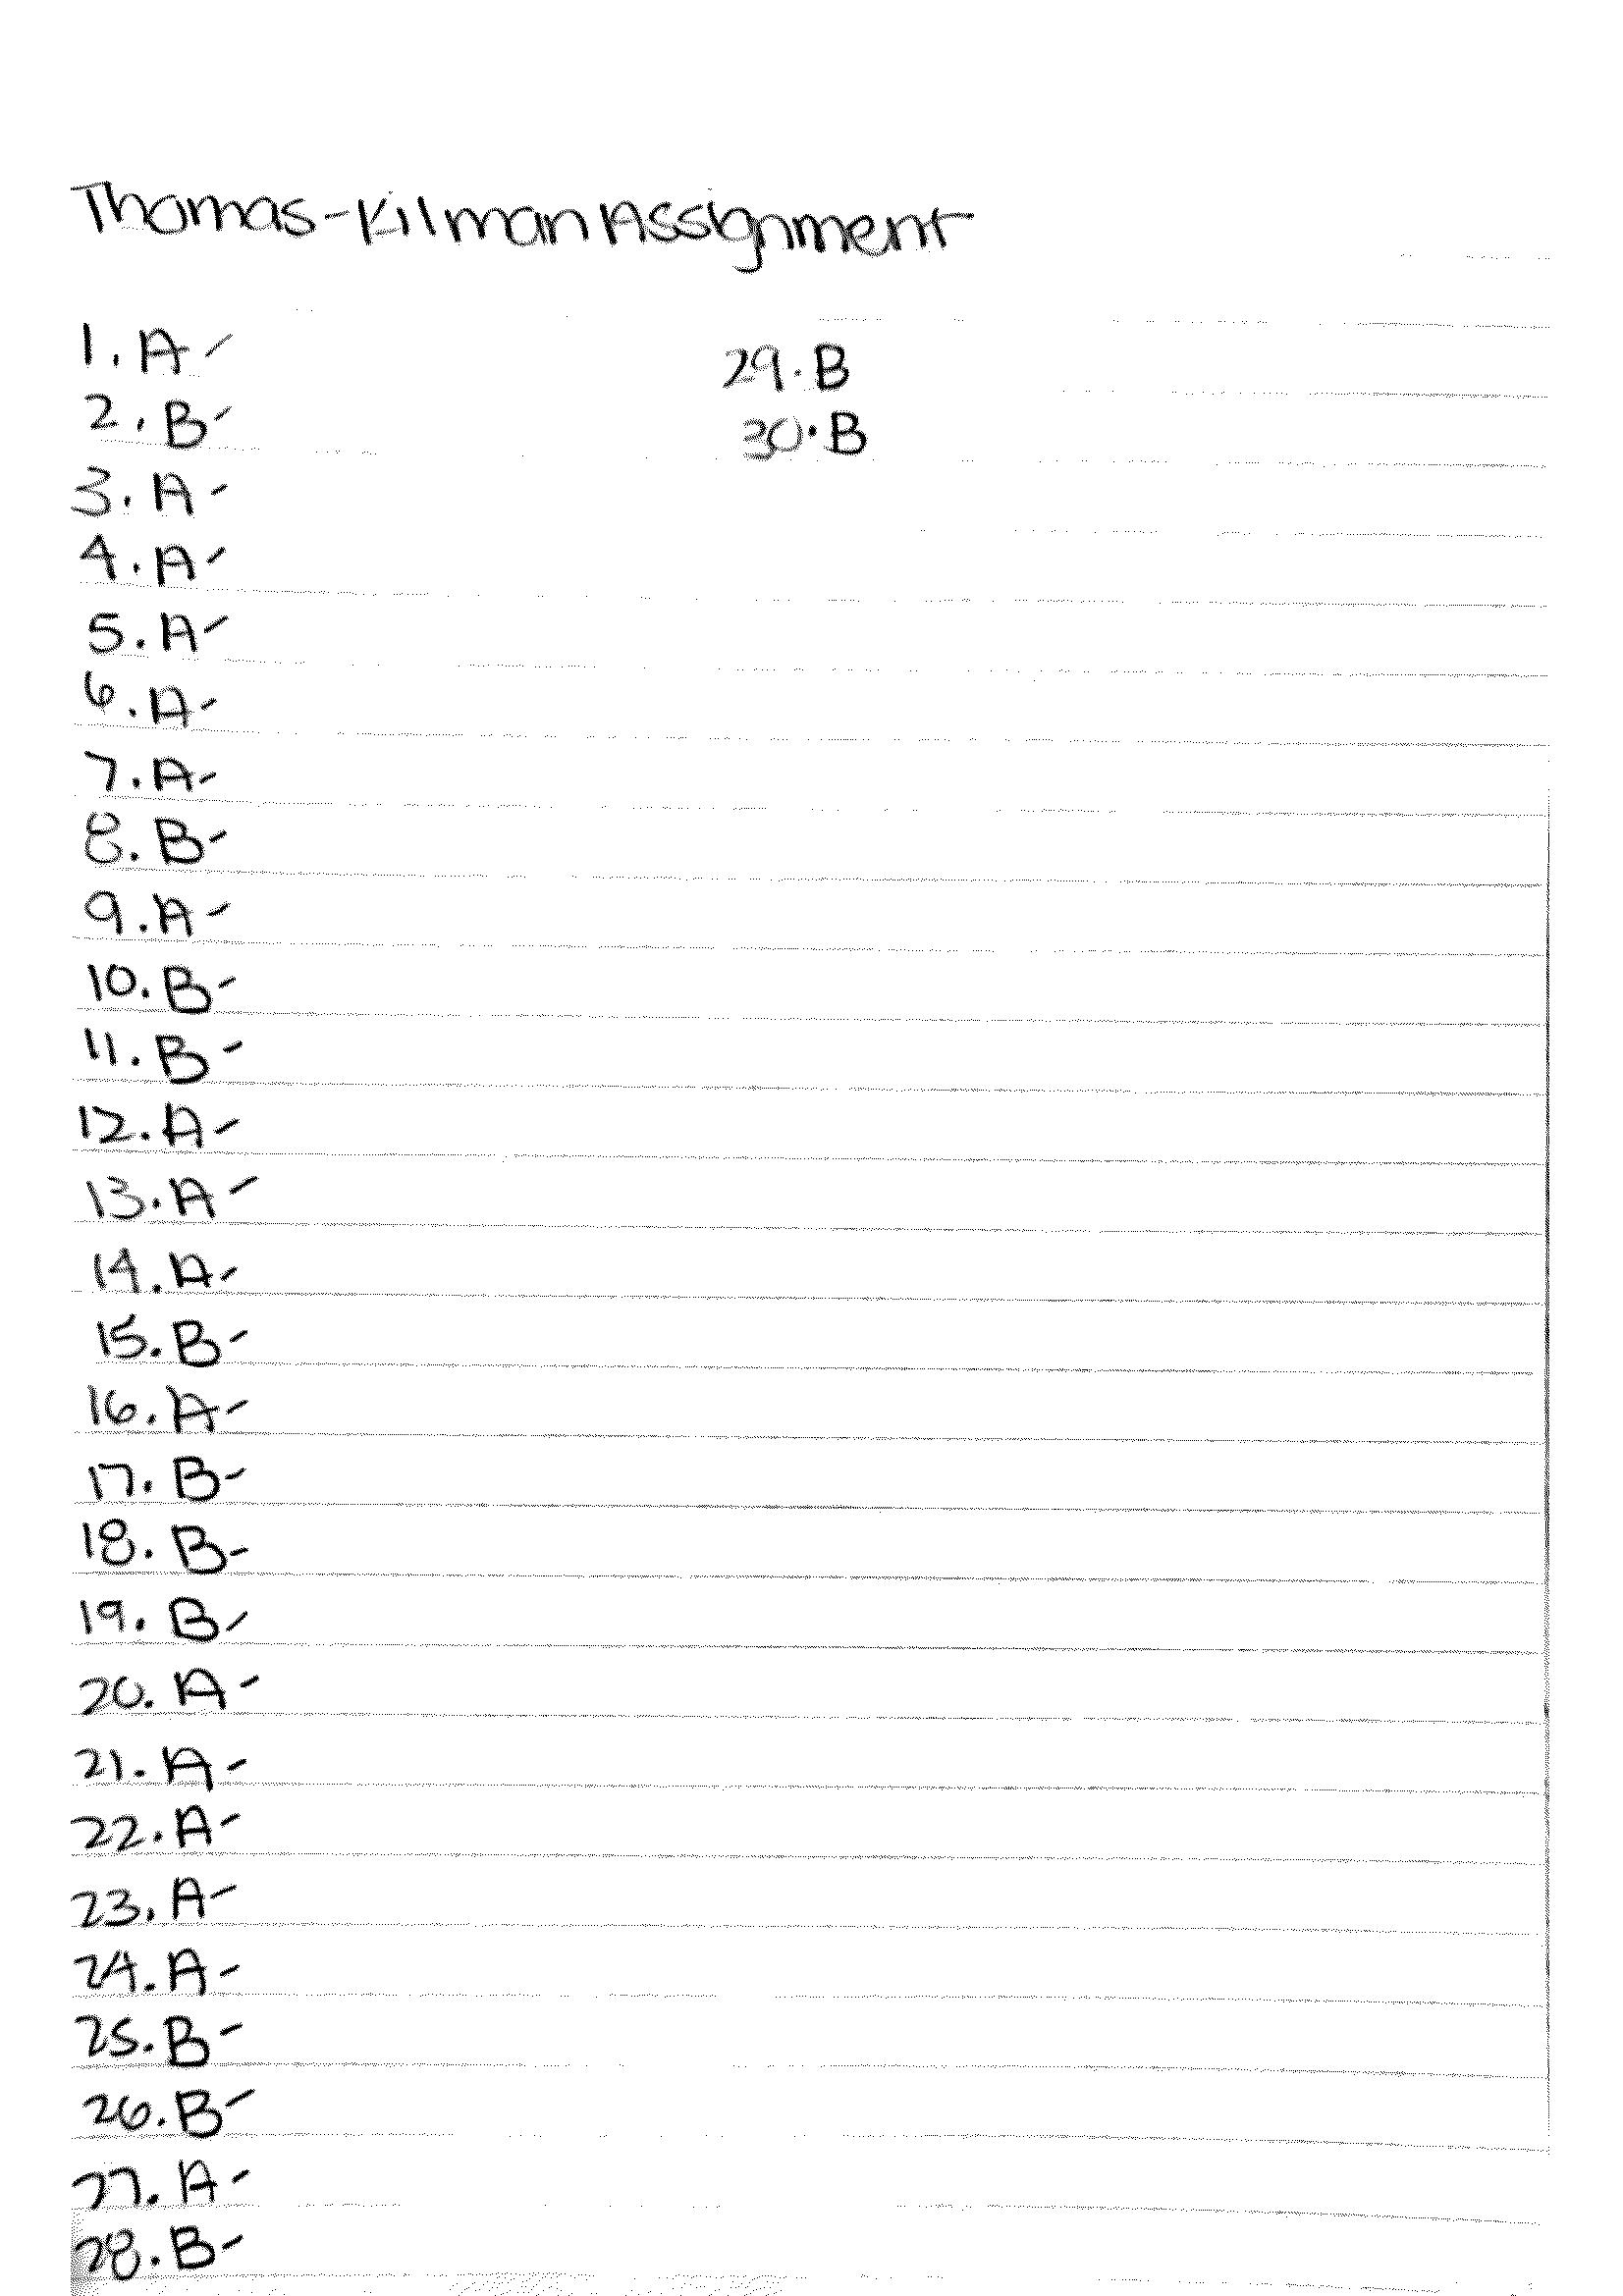 Thomas-Kilman Assignment
1. A -
2. B -
3. A -
4. A -
5. A -
6. A -
7. A -
8. B -
9. A -
10. B -
11. B -
12. A -
13. A -
14. A -
15. B -
16. A -
17. B -
18. B -
19. B -
20. A -
21. A -
22. A -
23. A -
24. A -
25. B -
26. B -
27. A -
28. B -
29. B
30. B